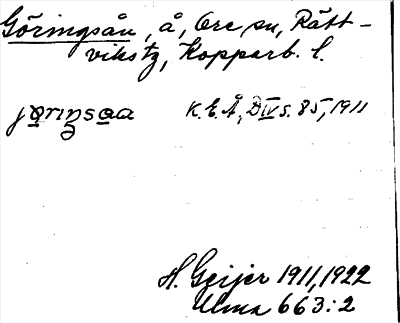 Göringsån, å, Ore sn, Rätt-
vikstg, Kopparb. l.
jøriŋsaa K. E. Å, D IV s. 85, 1911
H. Geijer 1911, 1922
Ulma 663:2